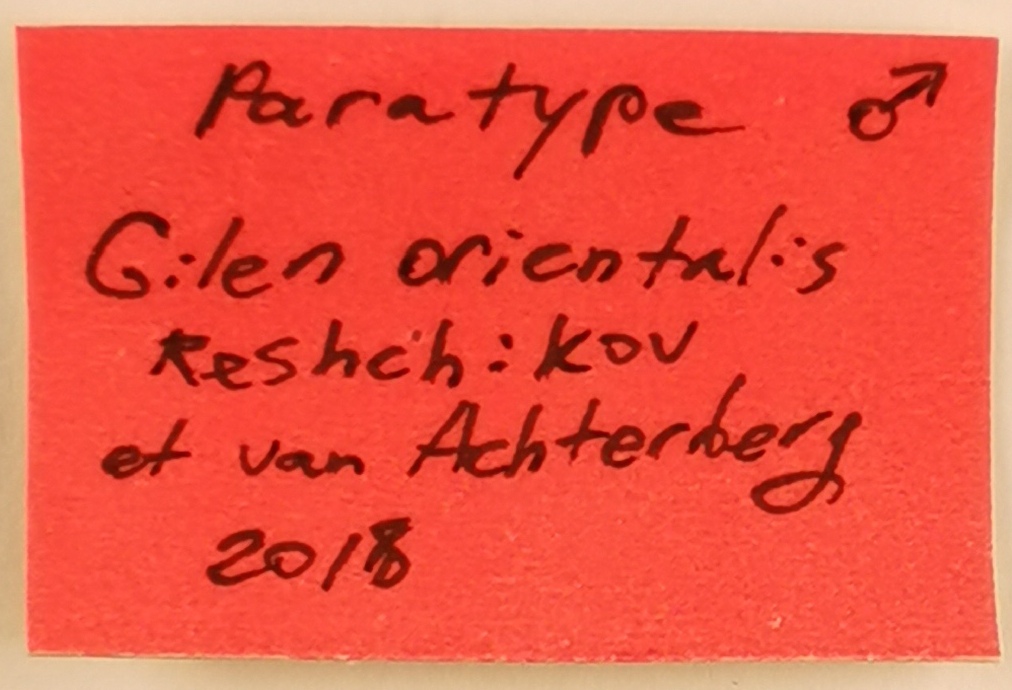 Paratype ♂
Gilen orientalis
Reshchikov
et van Achterberg
2018